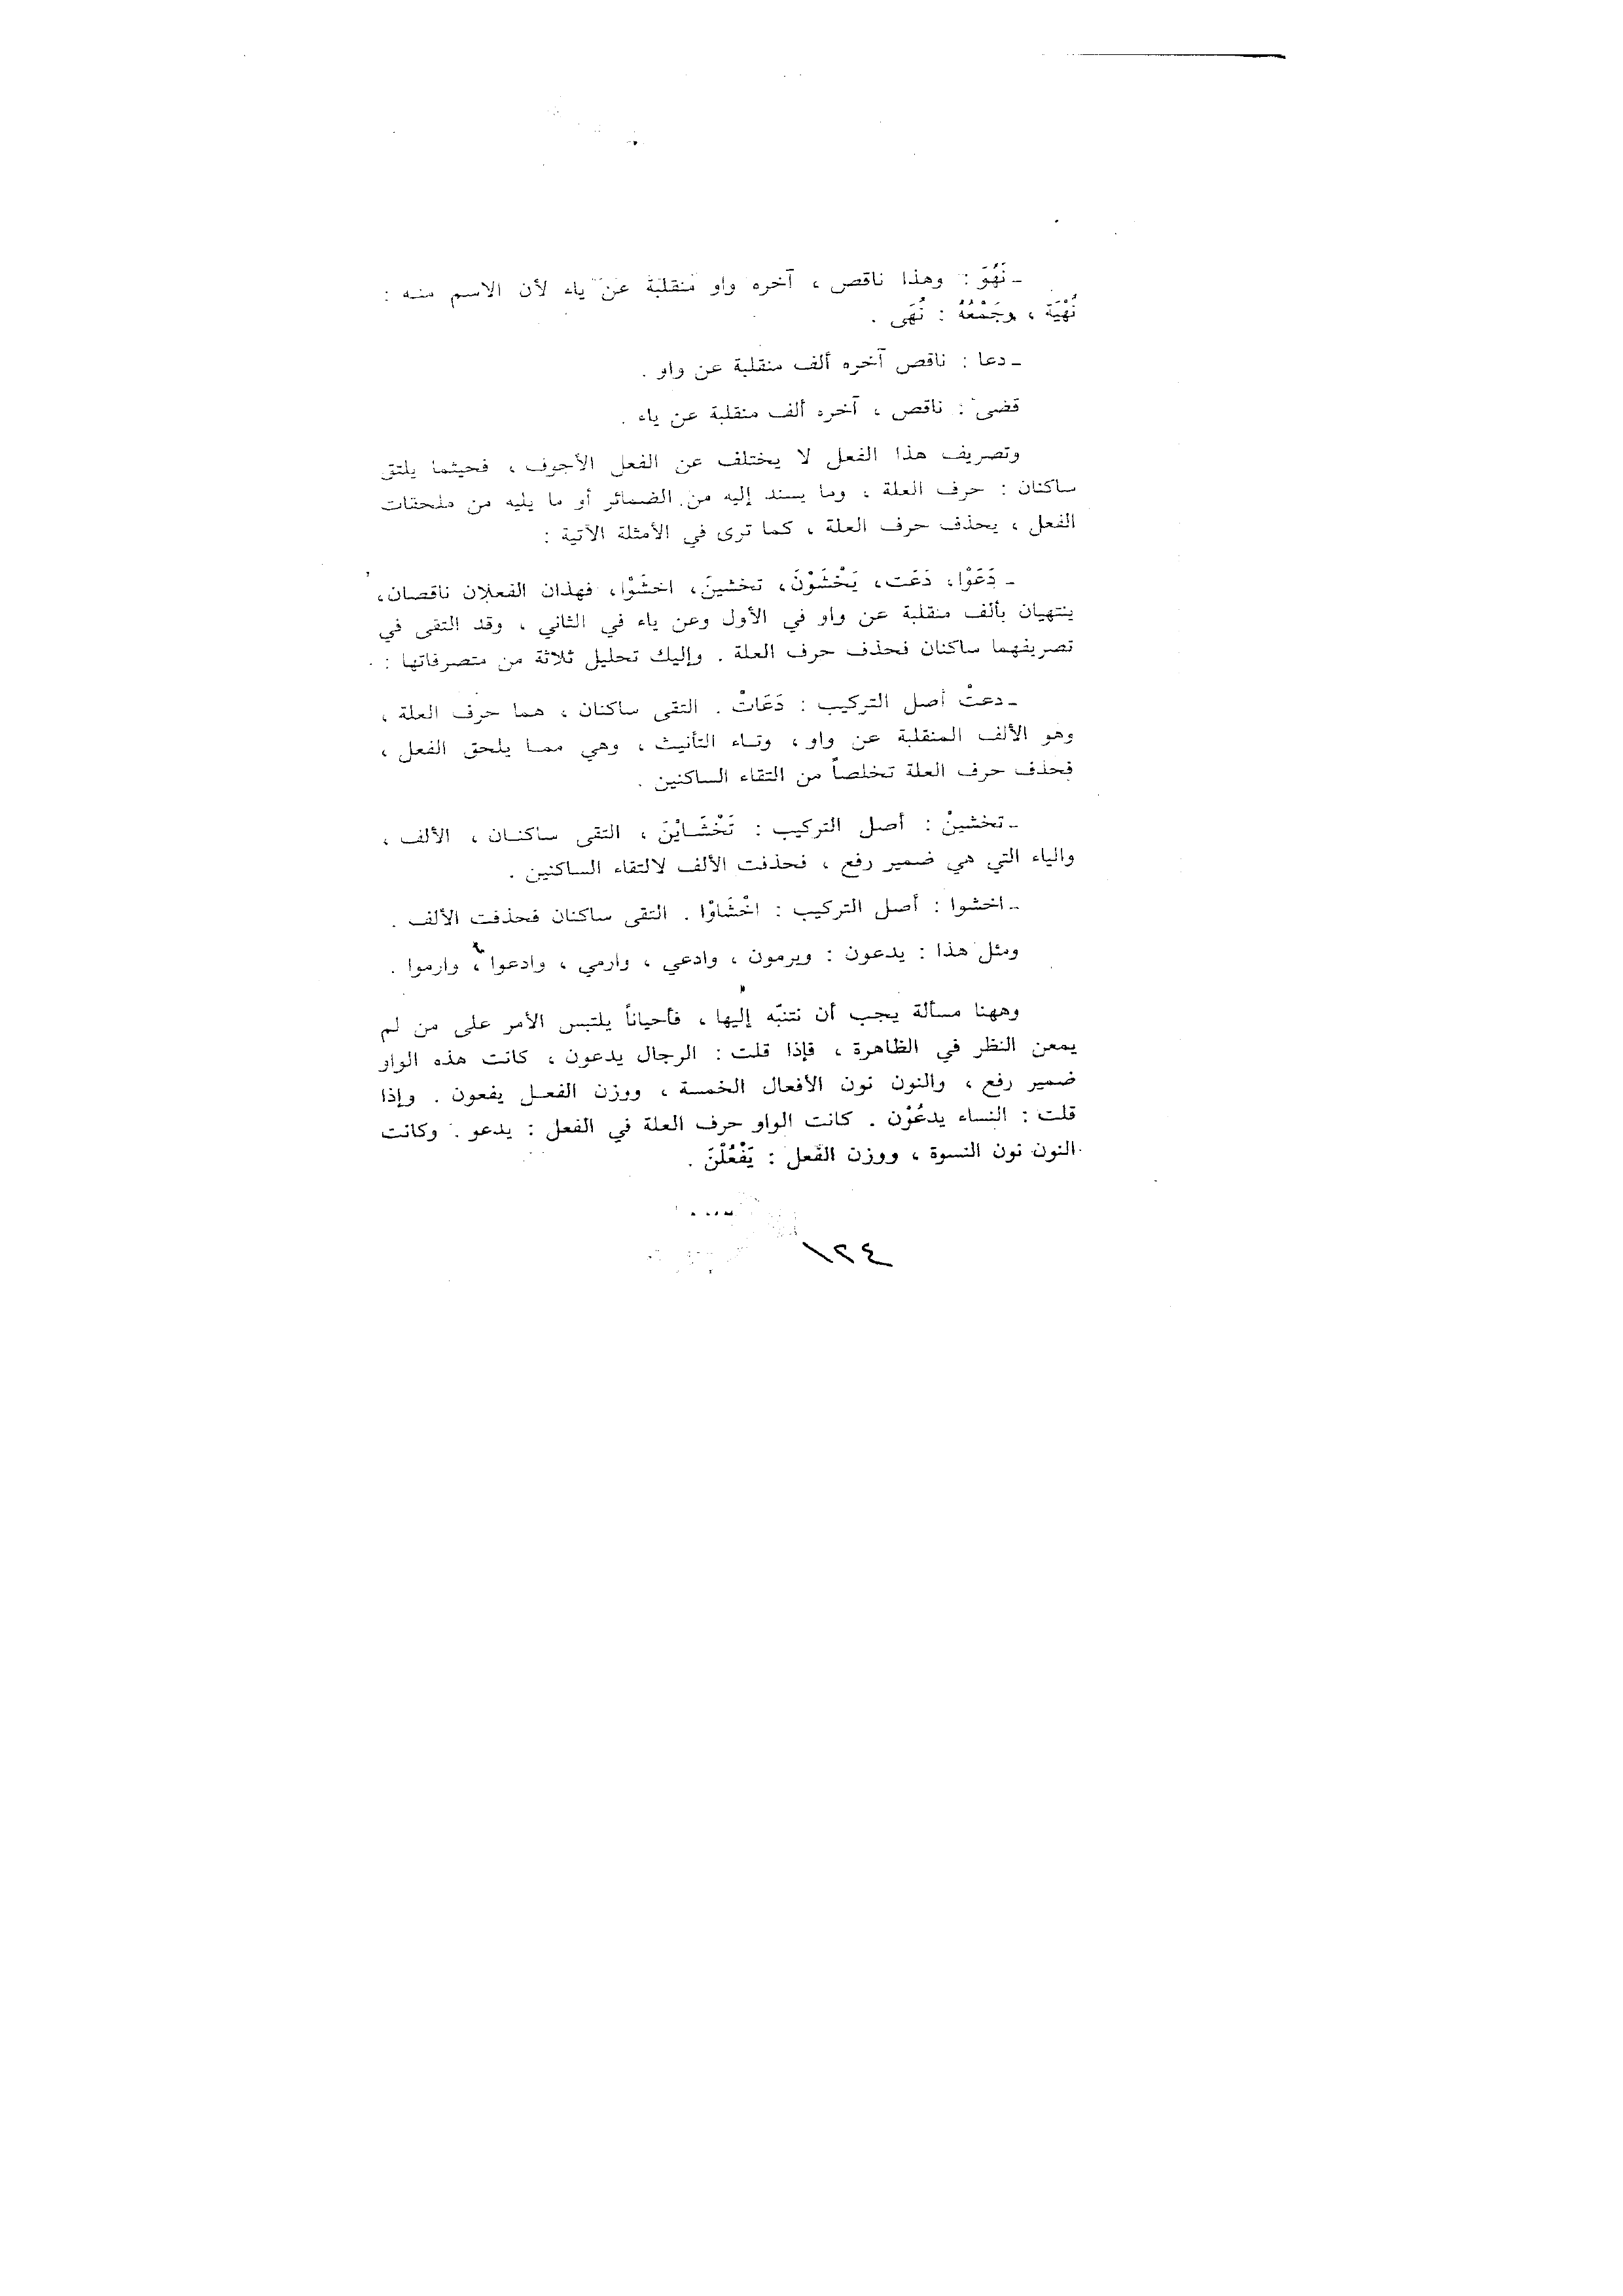 ـ نَهُوَ : وهذا ناقص ، آخره واو منقلبة عن ياء لأن الاسم منه :
نُهْيَة ، وجَمْعُهُ : نُهَى .
ـ دعا : ناقص آخره ألف منقلبة عن واو .
قضى : ناقص ، آخره ألف منقلبة عن ياء .
وتصريف هذا الفعل لا يختلف عن الفعل الأجوف ، فحيثما يلتق
ساكنان : حرف العلة ، وما يسند إليه من الضمائر أو ما يليه من ملحقات
الفعل ، يحذف حرف العلة ، كما ترى في الأمثلة الآتية :
ـ دَعَوْا، دَعَت، يَخْشَوْنَ، تخشينَ، اخشَوْا، فهذان الفعلان ناقصان،
ينتهيان بألف منقلبة عن واو في الأول وعن ياء في الثاني ، وقد التقى في
تصريفهما ساكنان فحذف حرف العلة . وإليك تحليل ثلاثة من متصرفاتها :
ـ دعتْ أصل التركيب : دَعَاتْ . التقى ساكنان ، هما حرف العلة ،
وهو الألف المنقلبة عن واو ، وتاء التأنيث ، وهي مما يلحق الفعل ،
فحذف حرف العلة تخلصاً من التقاء الساكنين .
ـ تخشينْ : أصل التركيب : تَخْشَايْنَ ، التقى ساكنان ، الألف ،
والياء التي هي ضمير رفع ، فحذفت الألف لالتقاء الساكنين .
ـ اخشوا : أصل التركيب : اخْشَاوْا . التقى ساكنان فحذفت الألف .
ومثل هذا : يدعون : ويرمون ، وادعي ، وارمي ، وادعوا ، وارموا .
وههنا مسألة يجب أن نتنبّه إليها ، فأحياناً يلتبس الأمر على من لم
يمعن النظر في الظاهرة ، فإذا قلت : الرجال يدعون ، كانت هذه الواو
ضمير رفع ، والنون نون الأفعال الخمسة ، ووزن الفعل يفعون . وإذا
قلت : النساء يدعُوْن . كانت الواو حرف العلة في الفعل : يدعو . وكانت
النون نون النسوة ، ووزن الفعل : يَفْعُلْنَ .
١٢٤